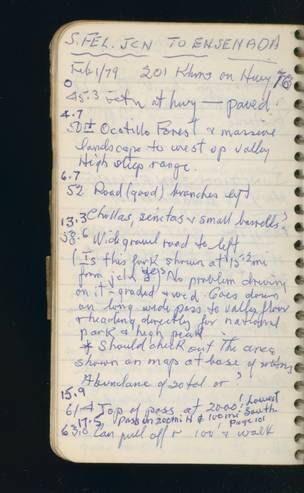 S. FEL. JCN TO ENSENADA
Feb 1/79 201 Khms on Hwy
76
0
45.3 at hwy — paved
4.7
50± Ocotillo Forest & massive
landscape to west up valley
High steep range.
6.7
52 Road (good) branches left
13.3 Chollas, senitas & small barrells?
58.6 Wide gravel road to left
(Is this fork shown at 13.2 mi
from jctn? yes) No problem driving
on it - graded & wide Goes down
on long wide pass to valley floor
& heading directly for national
park & high peak
* Should check out the area
shown on map at base of
Abundance of sotol or ?
15.9
61± Top of pass at 2000'! Lowest
17.5 pass in 200 mi N & 100 mi South
Page 101
63.0 Can pull off R 100' & walk